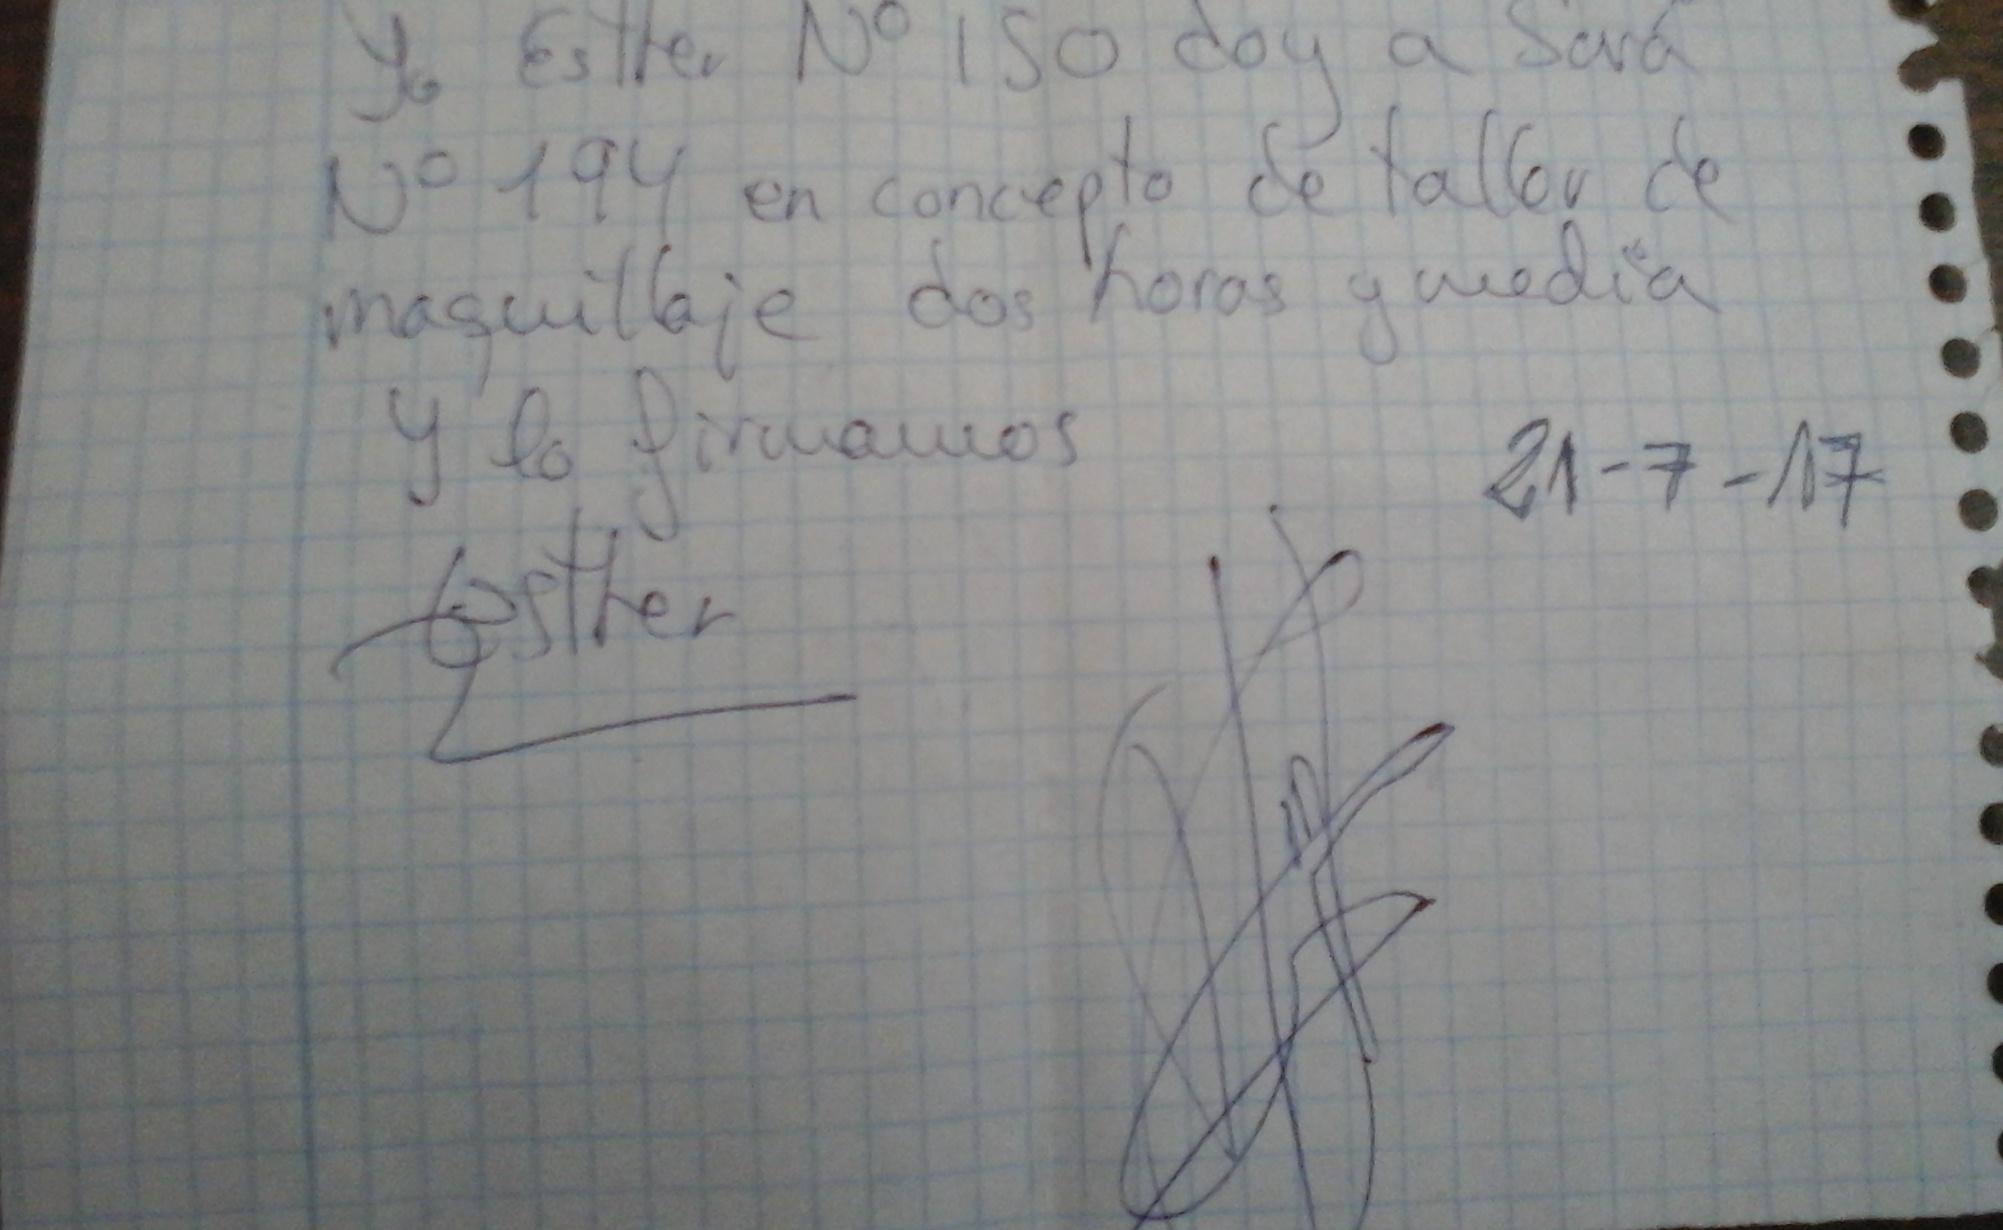 Yo Esther Nº 150 doy a Sara
Nº 194 en concepto de taller de
maquillaje dos horas y media
y lo firmamos
21-7-17
Esther